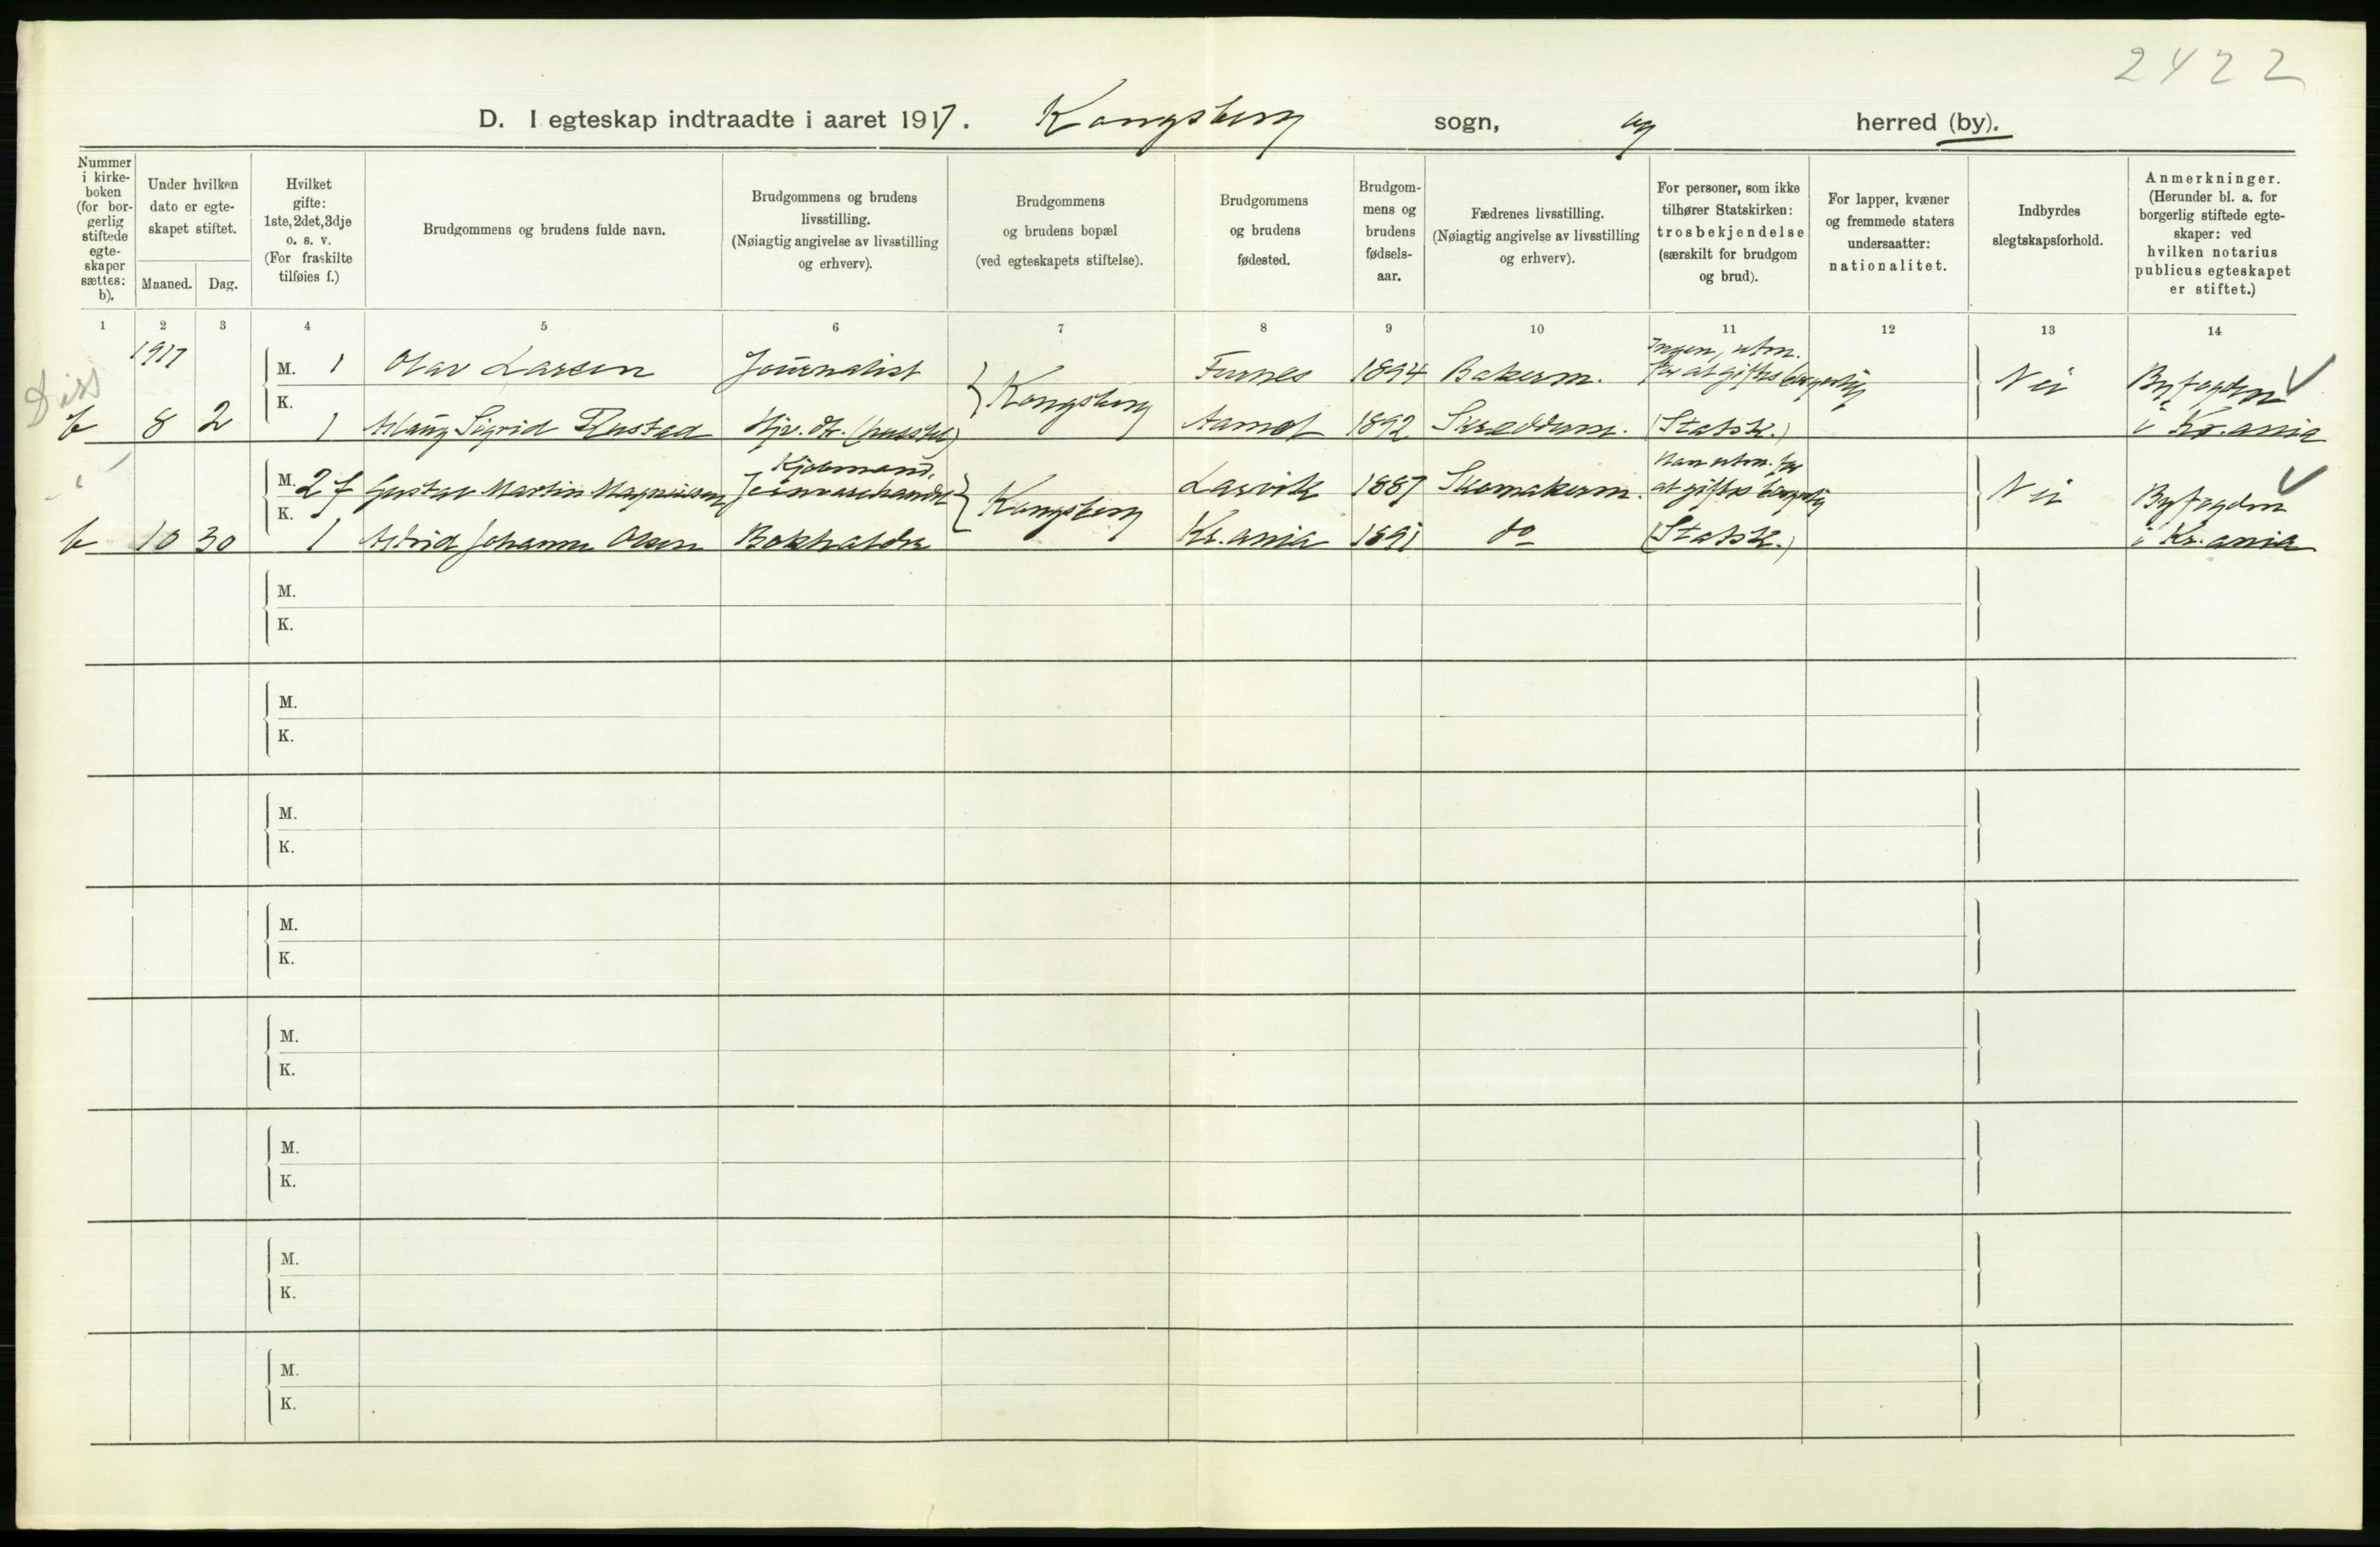 2422
D. I egteskap indtraadte i aaret 1917. Kongsberg sogn, og herred (by).
Nummer i kirke-boken (for bor-gerlig stiftede egte-skaper sættes: b).
Under hvilken dato er egte-skapet stiftet.
Maaned. Dag.
Hvilket gifte: 1ste, 2det, 3dje o. s. v. (For fraskilte tilføies f.)
Brudgommens og brudens fulde navn.
Brudgommens og brudens livsstilling. (Nøiagtig angivelse av livsstilling og erhverv).
Brudgommens og brudens bopæl (ved egteskapets stiftelse).
Brudgommens og brudens fødested.
Brudgom-mens og brudens fødsels-aar.
Fædrenes livsstilling. (Nøiagtig angivelse av livsstilling og erhverv).
For personer, som ikke tilhører Statskirken: trosbekjendelse (særskilt for brudgom og brud).
For lapper, kvæner og fremmede staters undersaatter: nationalitet.
Indbyrdes slegtskapsforhold.
Anmerkninger. (Herunder bl. a. for borgerlig stiftede egte-skaper: ved hvilken notarius publicus egteskapet er stiftet.)
1 2 3 4 5 6 7 8 9 10 11 12 13 14
1917 Ingen, utm.
Diss M. 1 Olav Larsen Journalist Furnes 1894 Bakerm. for at giftes borgerlig Nei Byfogden
K. Kongsberg
b 8 2 1 Aslaug Sigrid Rustad Hjv. dtr. (husstel) Aamot 1892 Skredderm. (Statsk.) i Kr.ania
Kjøbmand, Han utm. for
M. 2 f Gustav Martin Magnussen Jernvarehandel Larvik 1887 Skomakerm. at giftes borgerlig Nei Byfogden
K. Kongsberg
b 10 30 1 Astrid Johanne Olsen Bokholder Kr.ania 1891 do (Statsk.) i Kr.ania
M.
K.
M.
K.
M.
K.
M.
K.
M.
K.
M.
K.
M.
K.
M.
K.